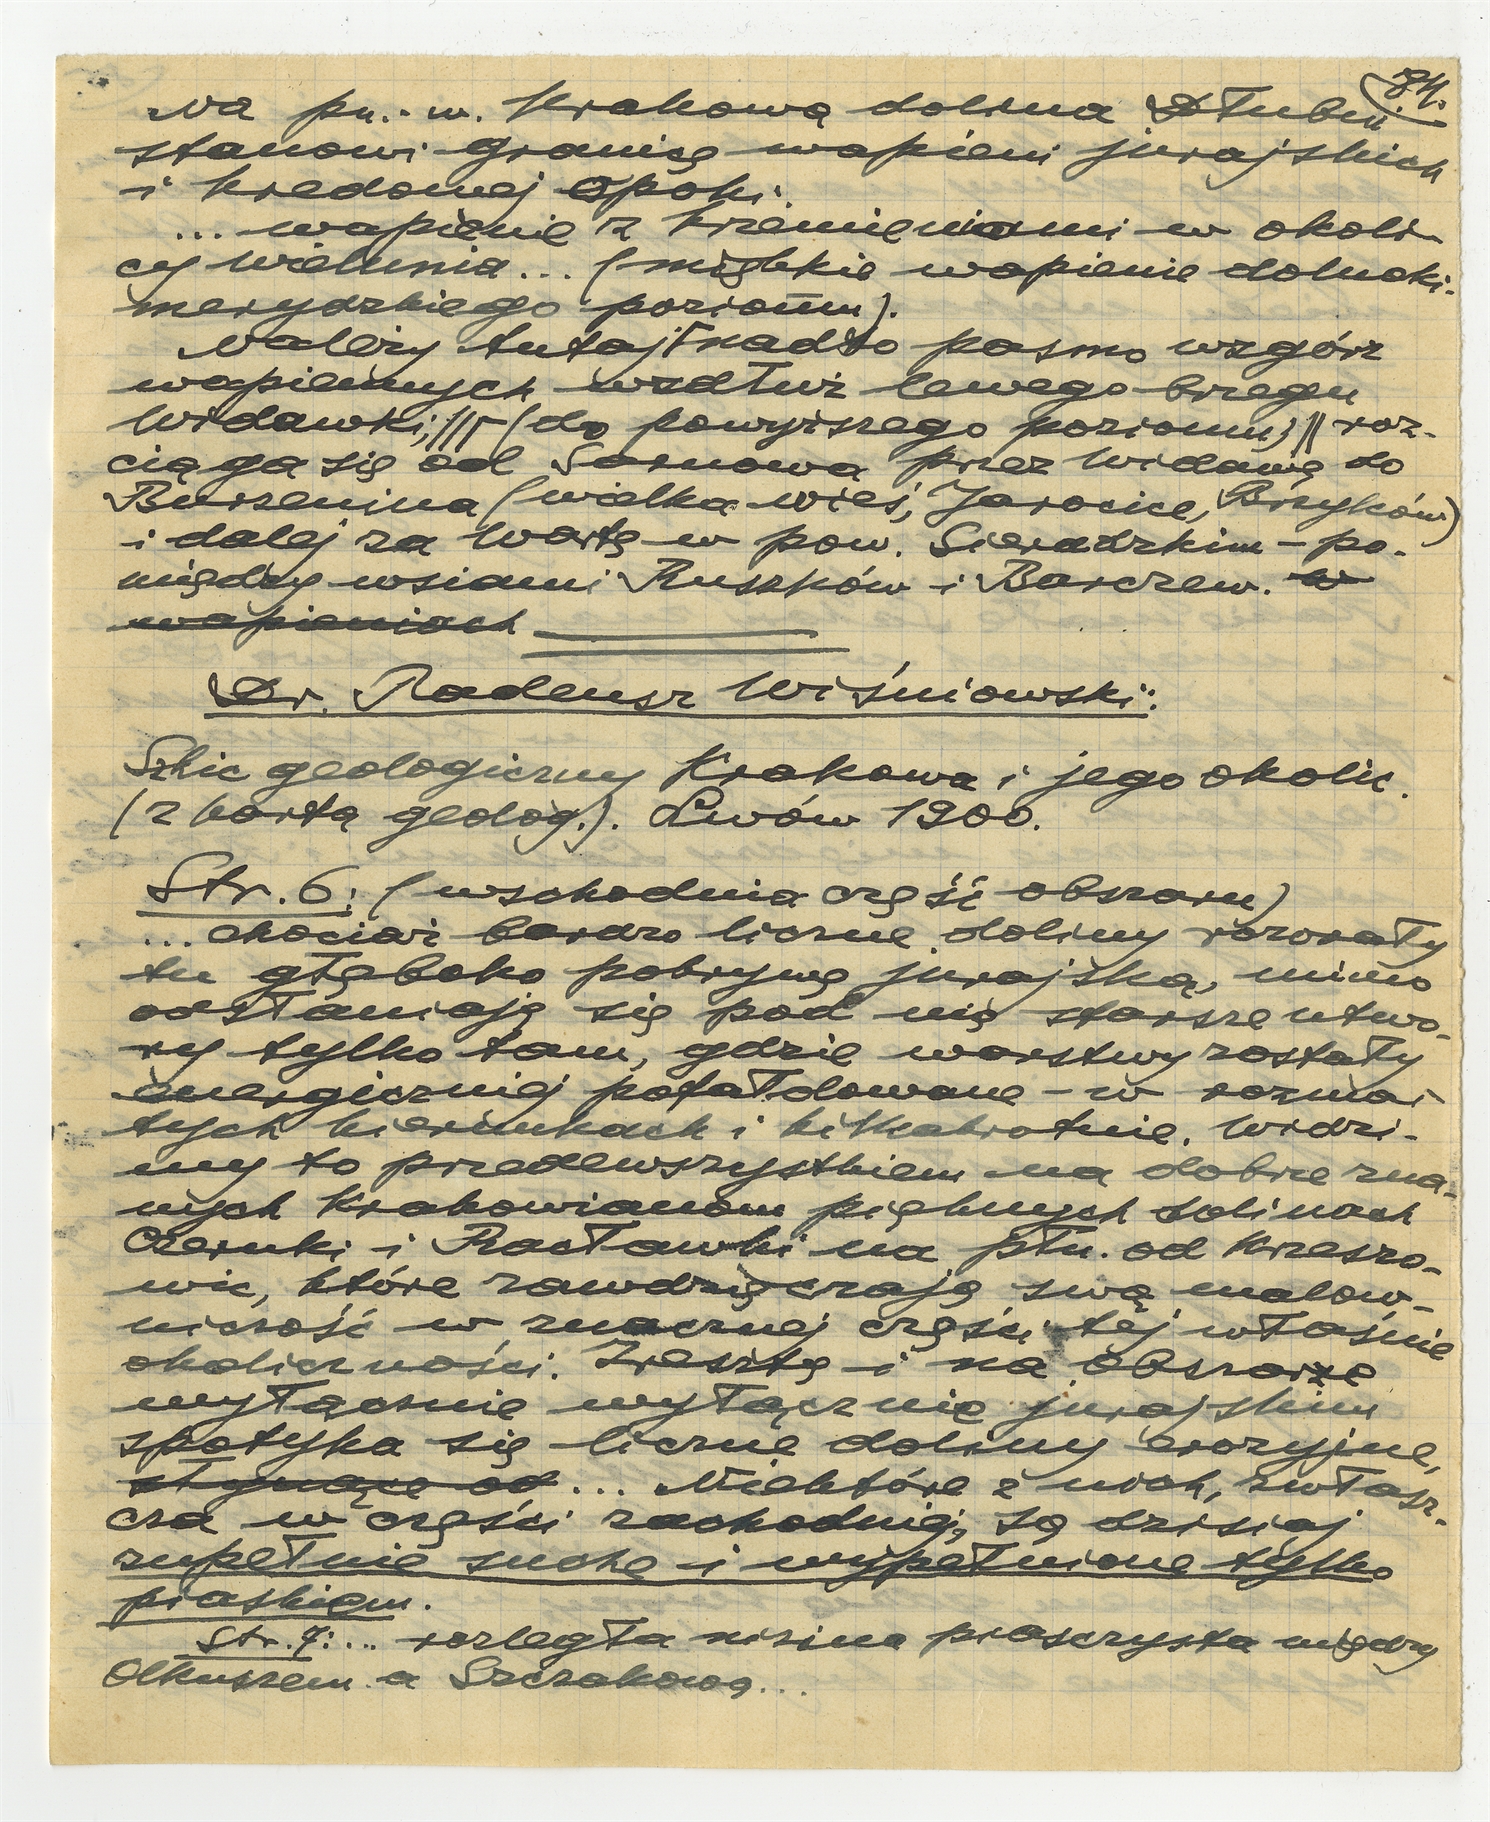 84.
Na pn.-w. Krakowa dolina Dłubni
stanowi granicę wapieni jurajskich
i kredowej opoki.
... wapienie z krzemieniami w okoli-
cy Wielunia... (miękkie wapienie dolnoki-
merydzkiego poziomu).
Należy tutaj nadto pasmo wzgórz
wapiennych wzdłuż lewego brzegu
Widawki; (do powyższego poziomu) roz-
ciąga się od Sarnowa przez Widawę do
Burzenina (wielka wieś, Jarocice, Brzyków)
i dalej za Wartę w pow. Sieradzkim - po-
między wsiami Ruszków i Barczew. w
wapieniach
Dr. Tadeusz Wiśniowski:
Szkic geologiczny Krakowa i jego okolic.
(z kartą geolog.). Lwów 1900.
Str. 6: (wschodnia część obszaru)
... chociaż bardzo liczne doliny rozorały
tu głęboko pokrywę jurajską, mimo
odsłaniają się pod nią starsze utwo-
ry tylko tam, gdzie warstwy zostały
energiczniej pofałdowane - w rozmai
tych kierunkach i kilkakrotnie. Widzi-
my to przedewszystkiem na dobrze zna-
nych Krakowianom pięknych dolinach
Czernki i Racławki na płn. od Krzeszo-
wic, które zawdzięczają swą malow-
niczość w znacznej części tej właśnie
okoliczności. Zresztą i na obszarze
wyłącznie wyłącznie jurajskim
spotyka się liczne doliny erozyjne,
słynące od ... Niektóre z nich, zwłasz-
cza w części zachodniej, są dzisiaj
zupełnie suche i wypełnione tylko
piaskiem.
Str. 7: ... rozległa nizina piaszczysta między
Olkuszem a Szczakową...